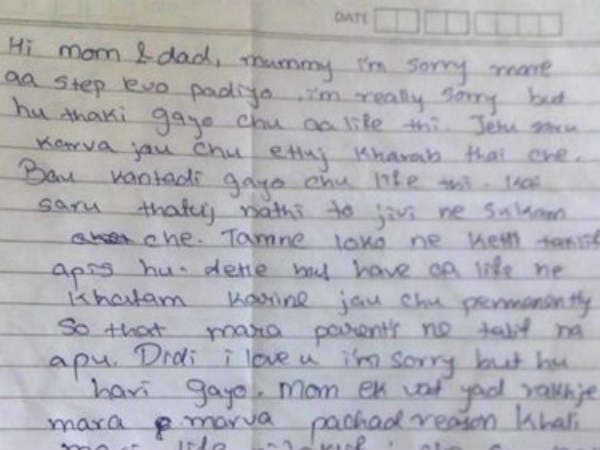 DATE
Hi mom & dad, mummy i'm sorry mare
aa step levo padiyo. i'm really sorry but
hu thaki gayo chu aa life thi. Jetu saru
karva jau chu etluj kharab thai che.
Bau kantadi gayo chu life thi. kai
saru thatuj nathi to jivi ne su kam
che. Tamne loko ne ketli taklif
apis hu. have aa life ne
khatam karine jau chu permanently
So that mara parents ne taklif na
apu. Didi i love u i'm sorry but hu
hari gayo. Mom ek vat yad rakhje
mara marva pachad reason khali
life